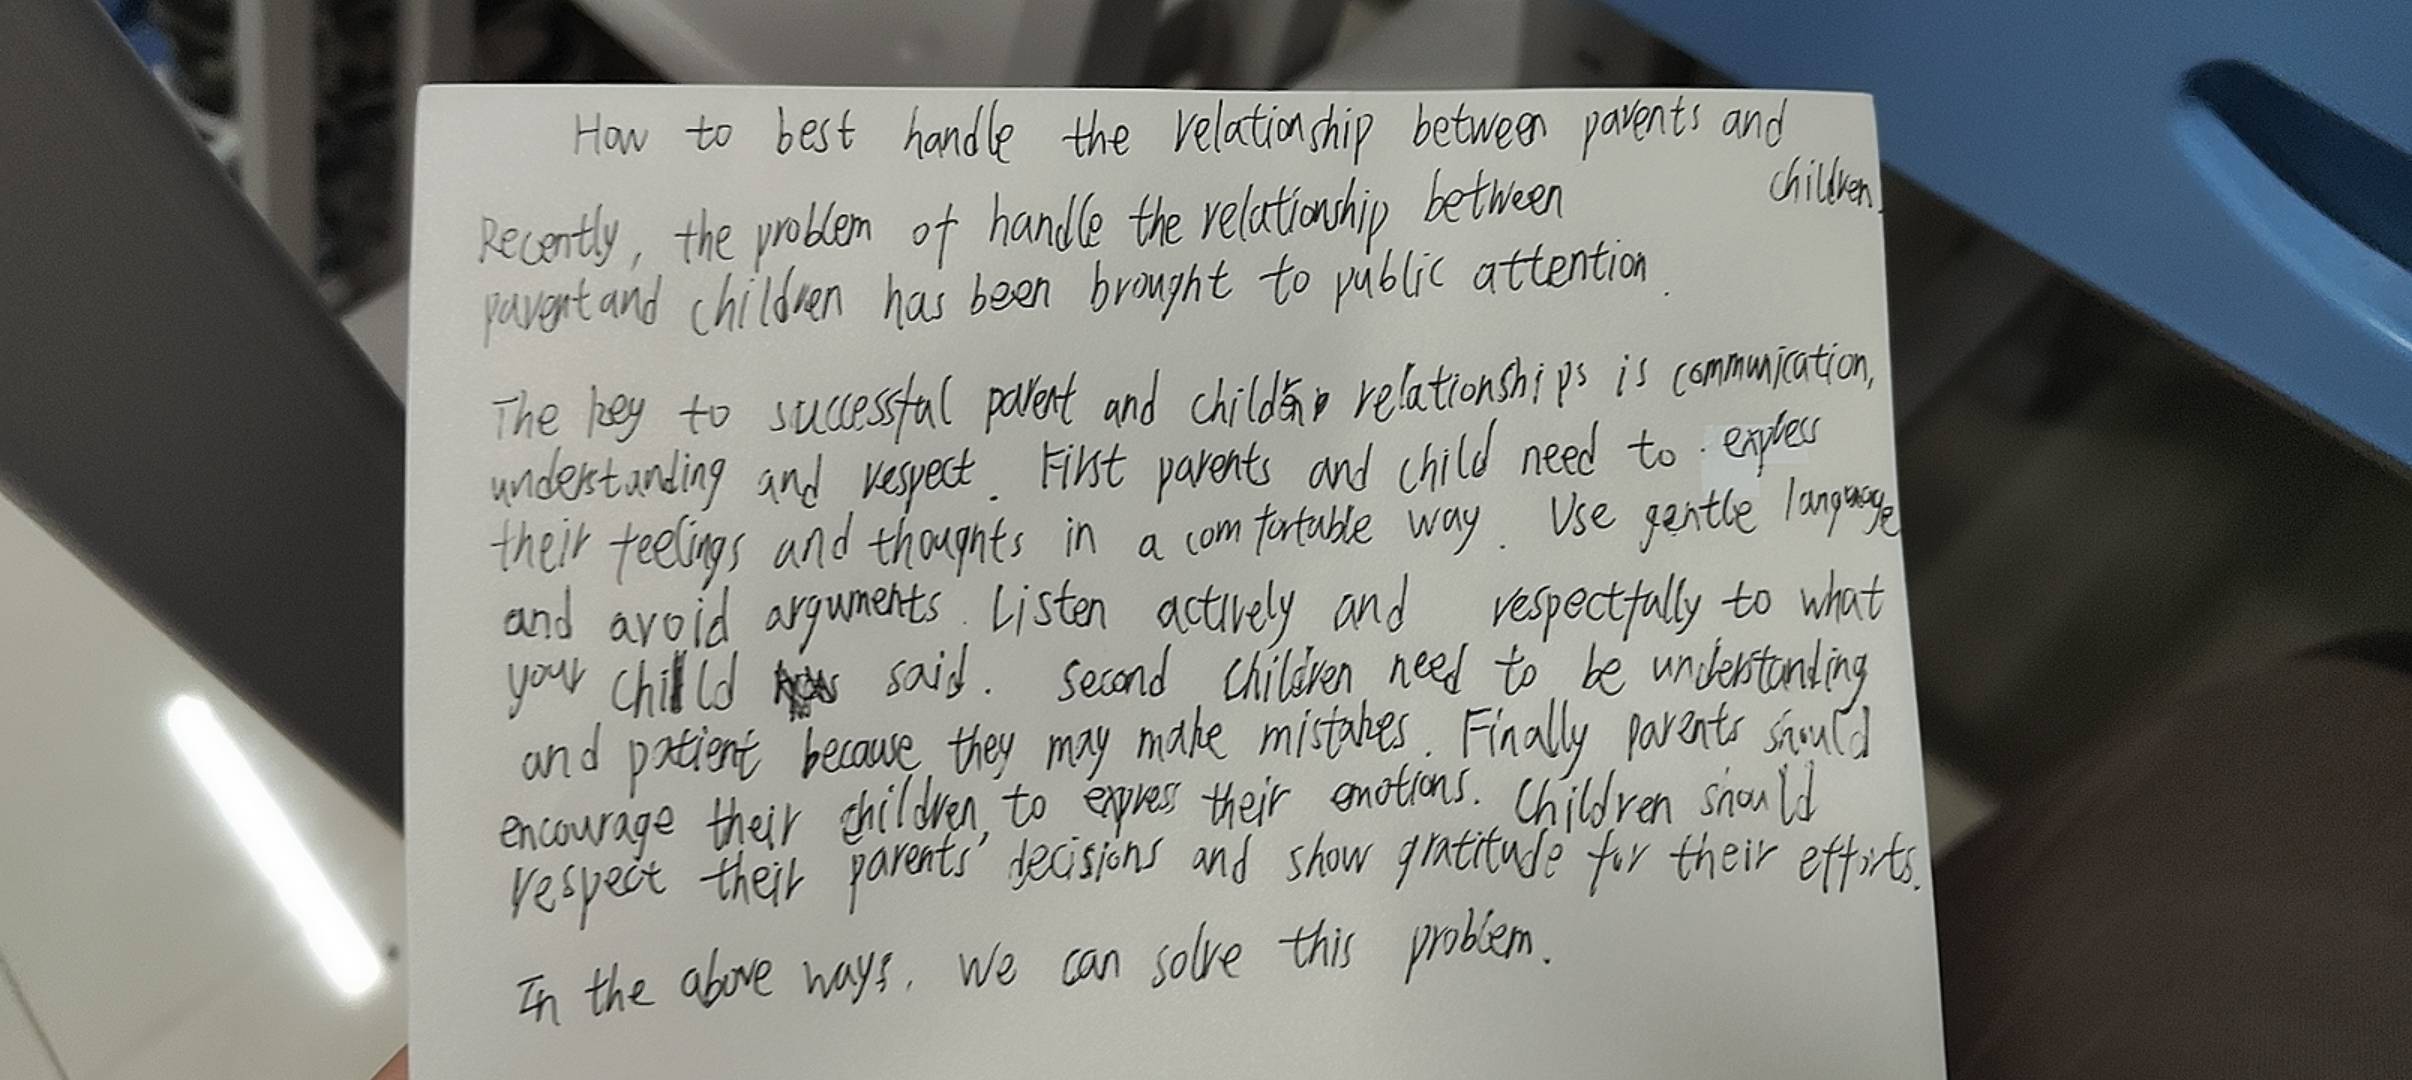 How to best handle the relationship between parents and
children.
Recently, the problem of handle the relationship between
parent and children has been brought to public attention.
The key to successful parent and children relationships is communication,
understanding and respect. First parents and child need to express
their feelings and thoughts in a comfortable way. Use gentle language
and avoid arguments. Listen actively and respectfully to what
your child said. Second children need to be understanding
and patient because they may make mistakes. Finally parents should
encourage their children, to express their emotions. Children should
respect their parents' decisions and show gratitude for their efforts.
In the above ways. We can solve this problem.